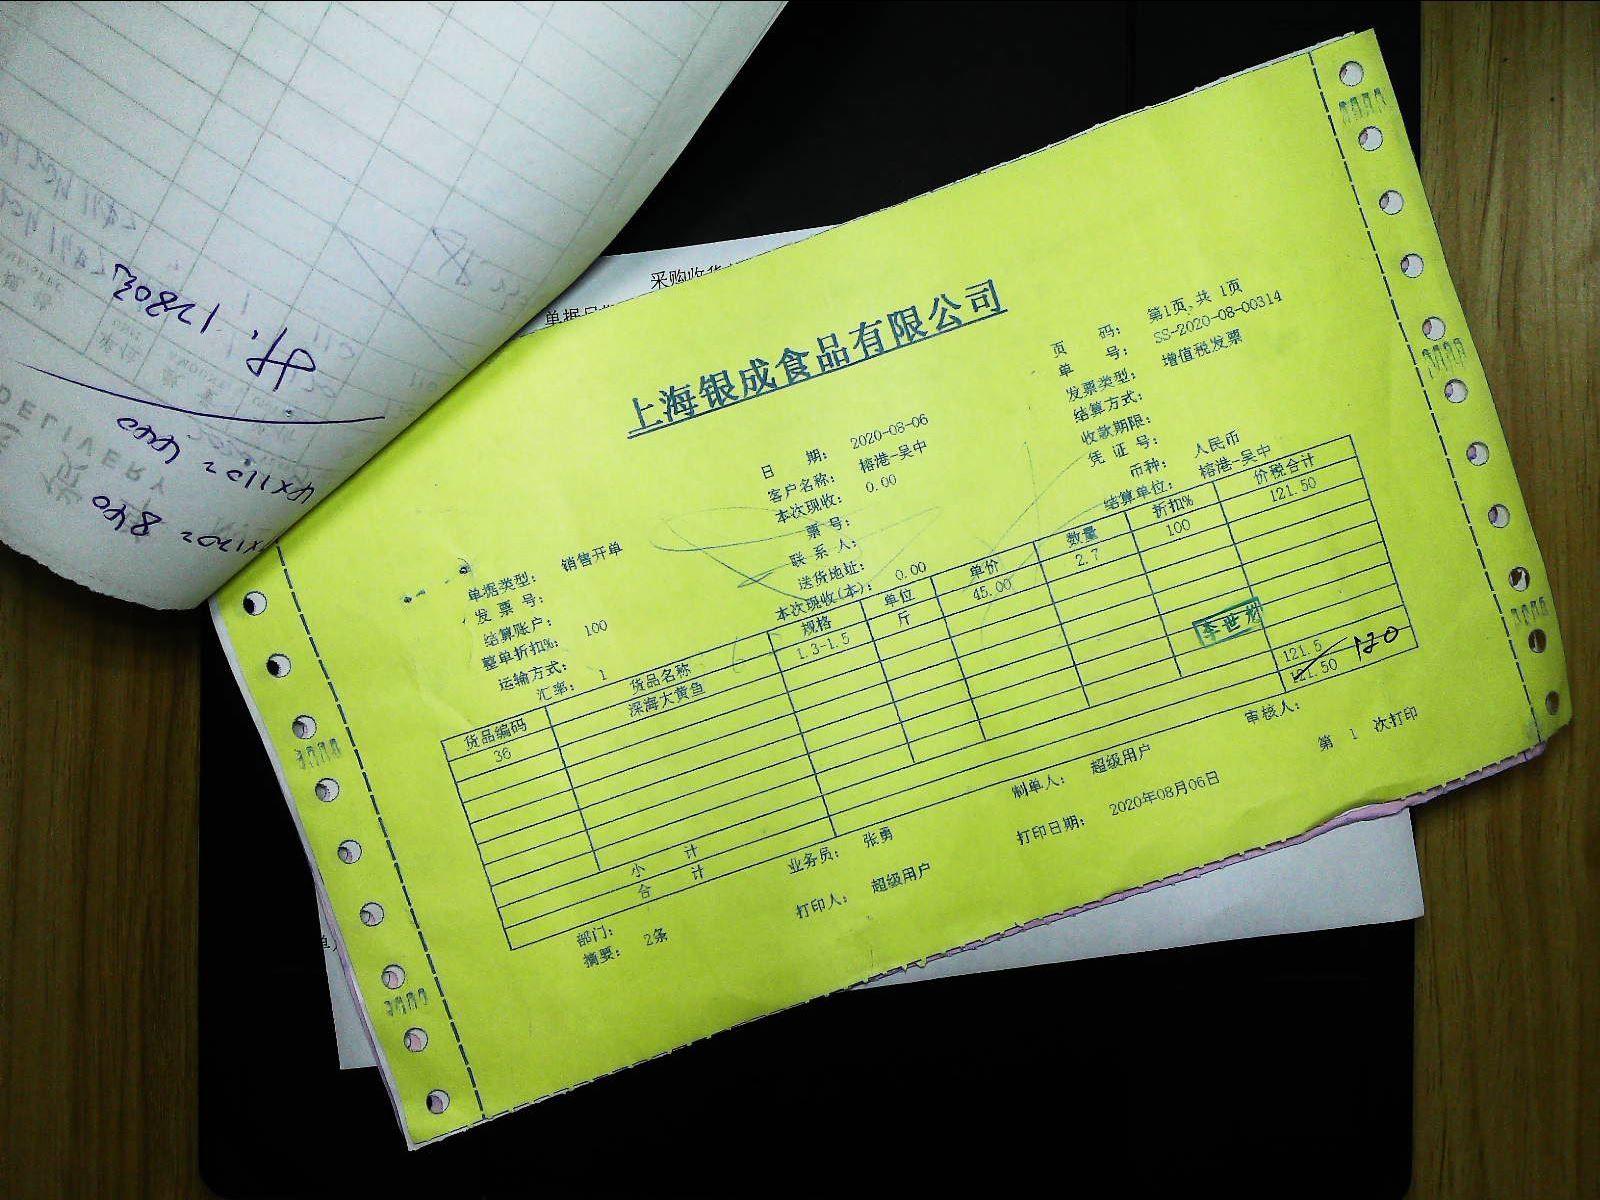 采购收货
单据日期
共:1280元
4×110=440
×120=840
DELIVERY
上海银成食品有限公司
页 码: 第1页,共 1页
单 号: SS-2020-08-00314
发票类型: 增值税发票
结算方式:
收款期限:
凭 证 号:
币种: 人民币
结算单位: 榕港-吴中
日 期: 2020-08-06
客户名称: 榕港-吴中
本次现收: 0.00
票 号:
联 系 人:
送货地址:
本次现收(本): 0.00
单据类型: 销售开单
发 票 号:
结算账户:
整单折扣%: 100
运输方式:
汇率: 1
货品编码 货品名称 规格 单位 单价 数量 折扣% 价税合计
36 深海大黄鱼 1.3-1.5 斤 45.00 2.7 100 121.50
小 计 121.5
合 计 121.50 120
部门: 业务员: 张勇 制单人: 超级用户 审核人:
摘要: 2条 打印人: 超级用户 打印日期: 2020年08月06日 第 1 次打印